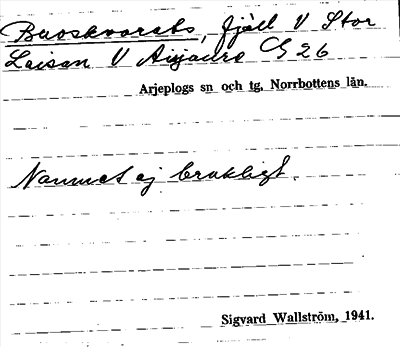 Buoskvarats, fjäll V Stor
Laisan V Aujaure G 26
Arjeplogs sn och tg, Norrbottens län.
Namnet ej brukligt.
Sigvard Wallström, 1941.